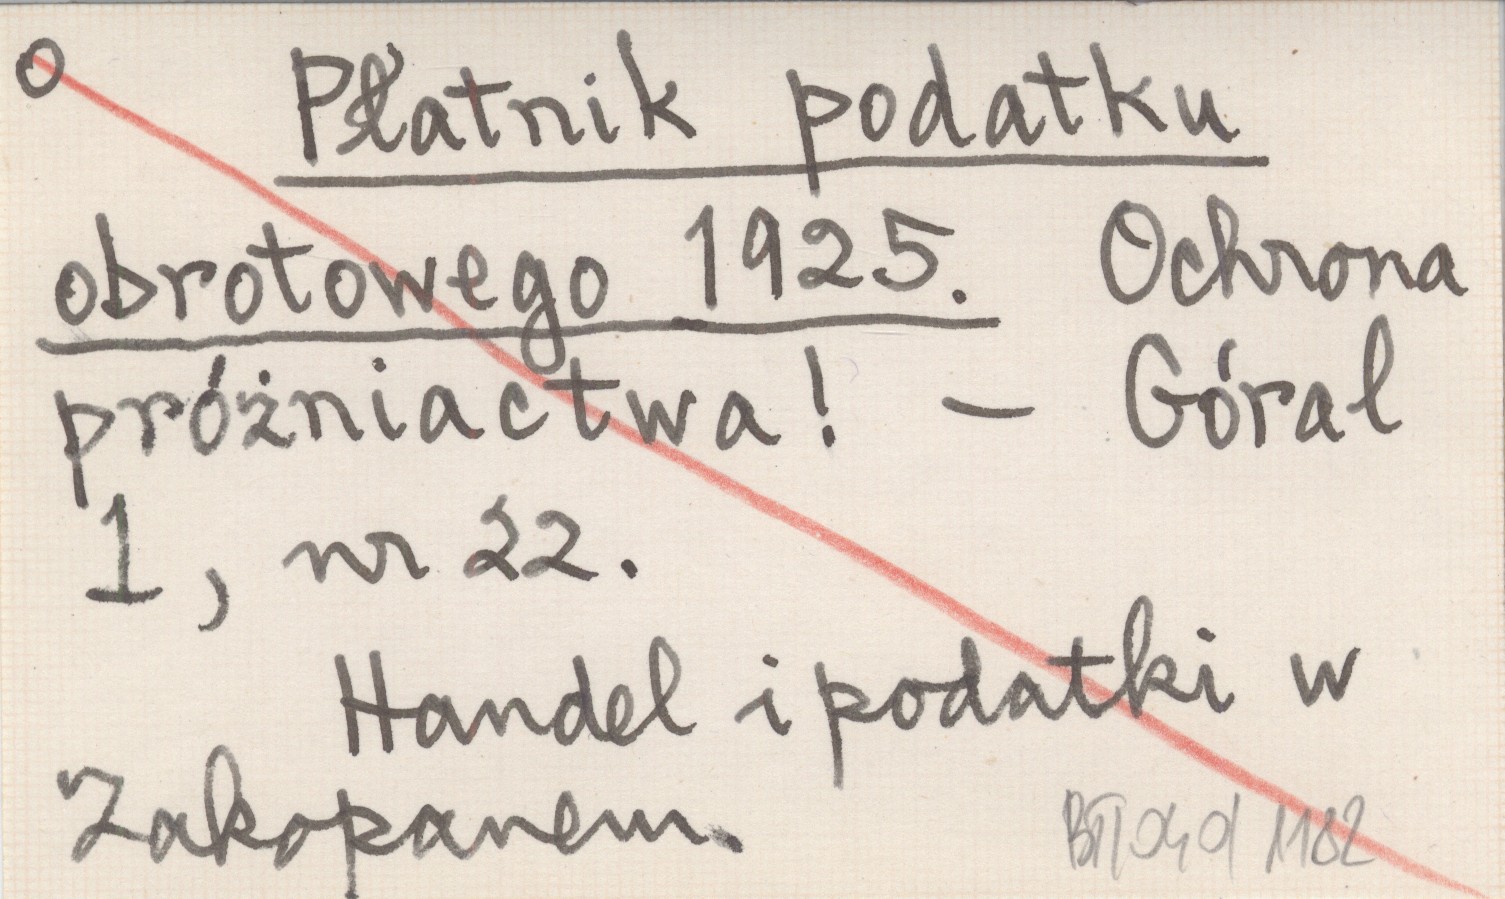 O Płatnik podatku
obrotowego 1925. Ochrona
próżniactwa! – Góral
1, nr 22.
Handel i podatki w
Zakopanem.
1182